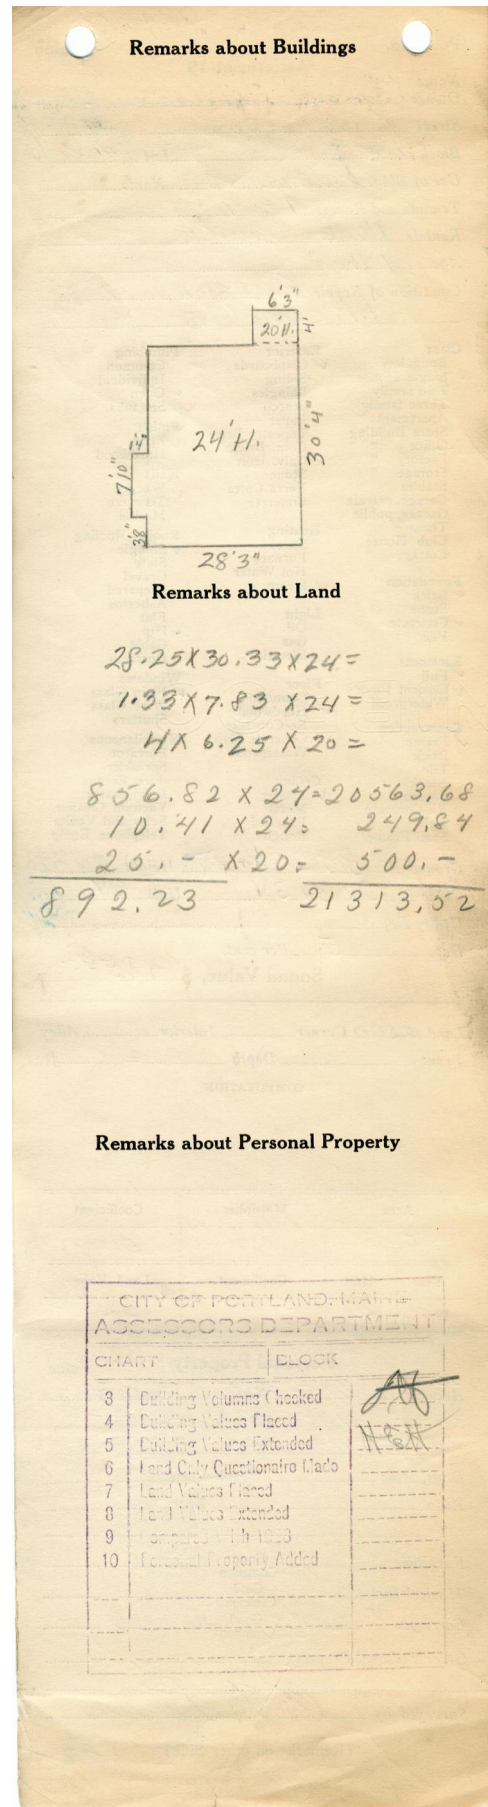 Remarks about Buildings
6'3"
20'H.
4'
24'H.
30'4"
7'10"
28'3"
Remarks about Land
28.25X30.33X24=
1.33X7.83X24=
4X6.25X20=
856.82 X 24=20563.68
10.41 X24= 249.84
25.- X20= 500.-
892.23 21313.52
Remarks about Personal Property
CITY OF PORTLAND, MAINE
ASSESSORS DEPARTMENT
CHART BLOCK
3 Building Volumns Checked
4 Building Values Placed
5 Building Values Extended
6 Land Only Questionaire Made
7 Land Values Placed
8 Land Values Extended
9 Compared With
10 Personal Property Added